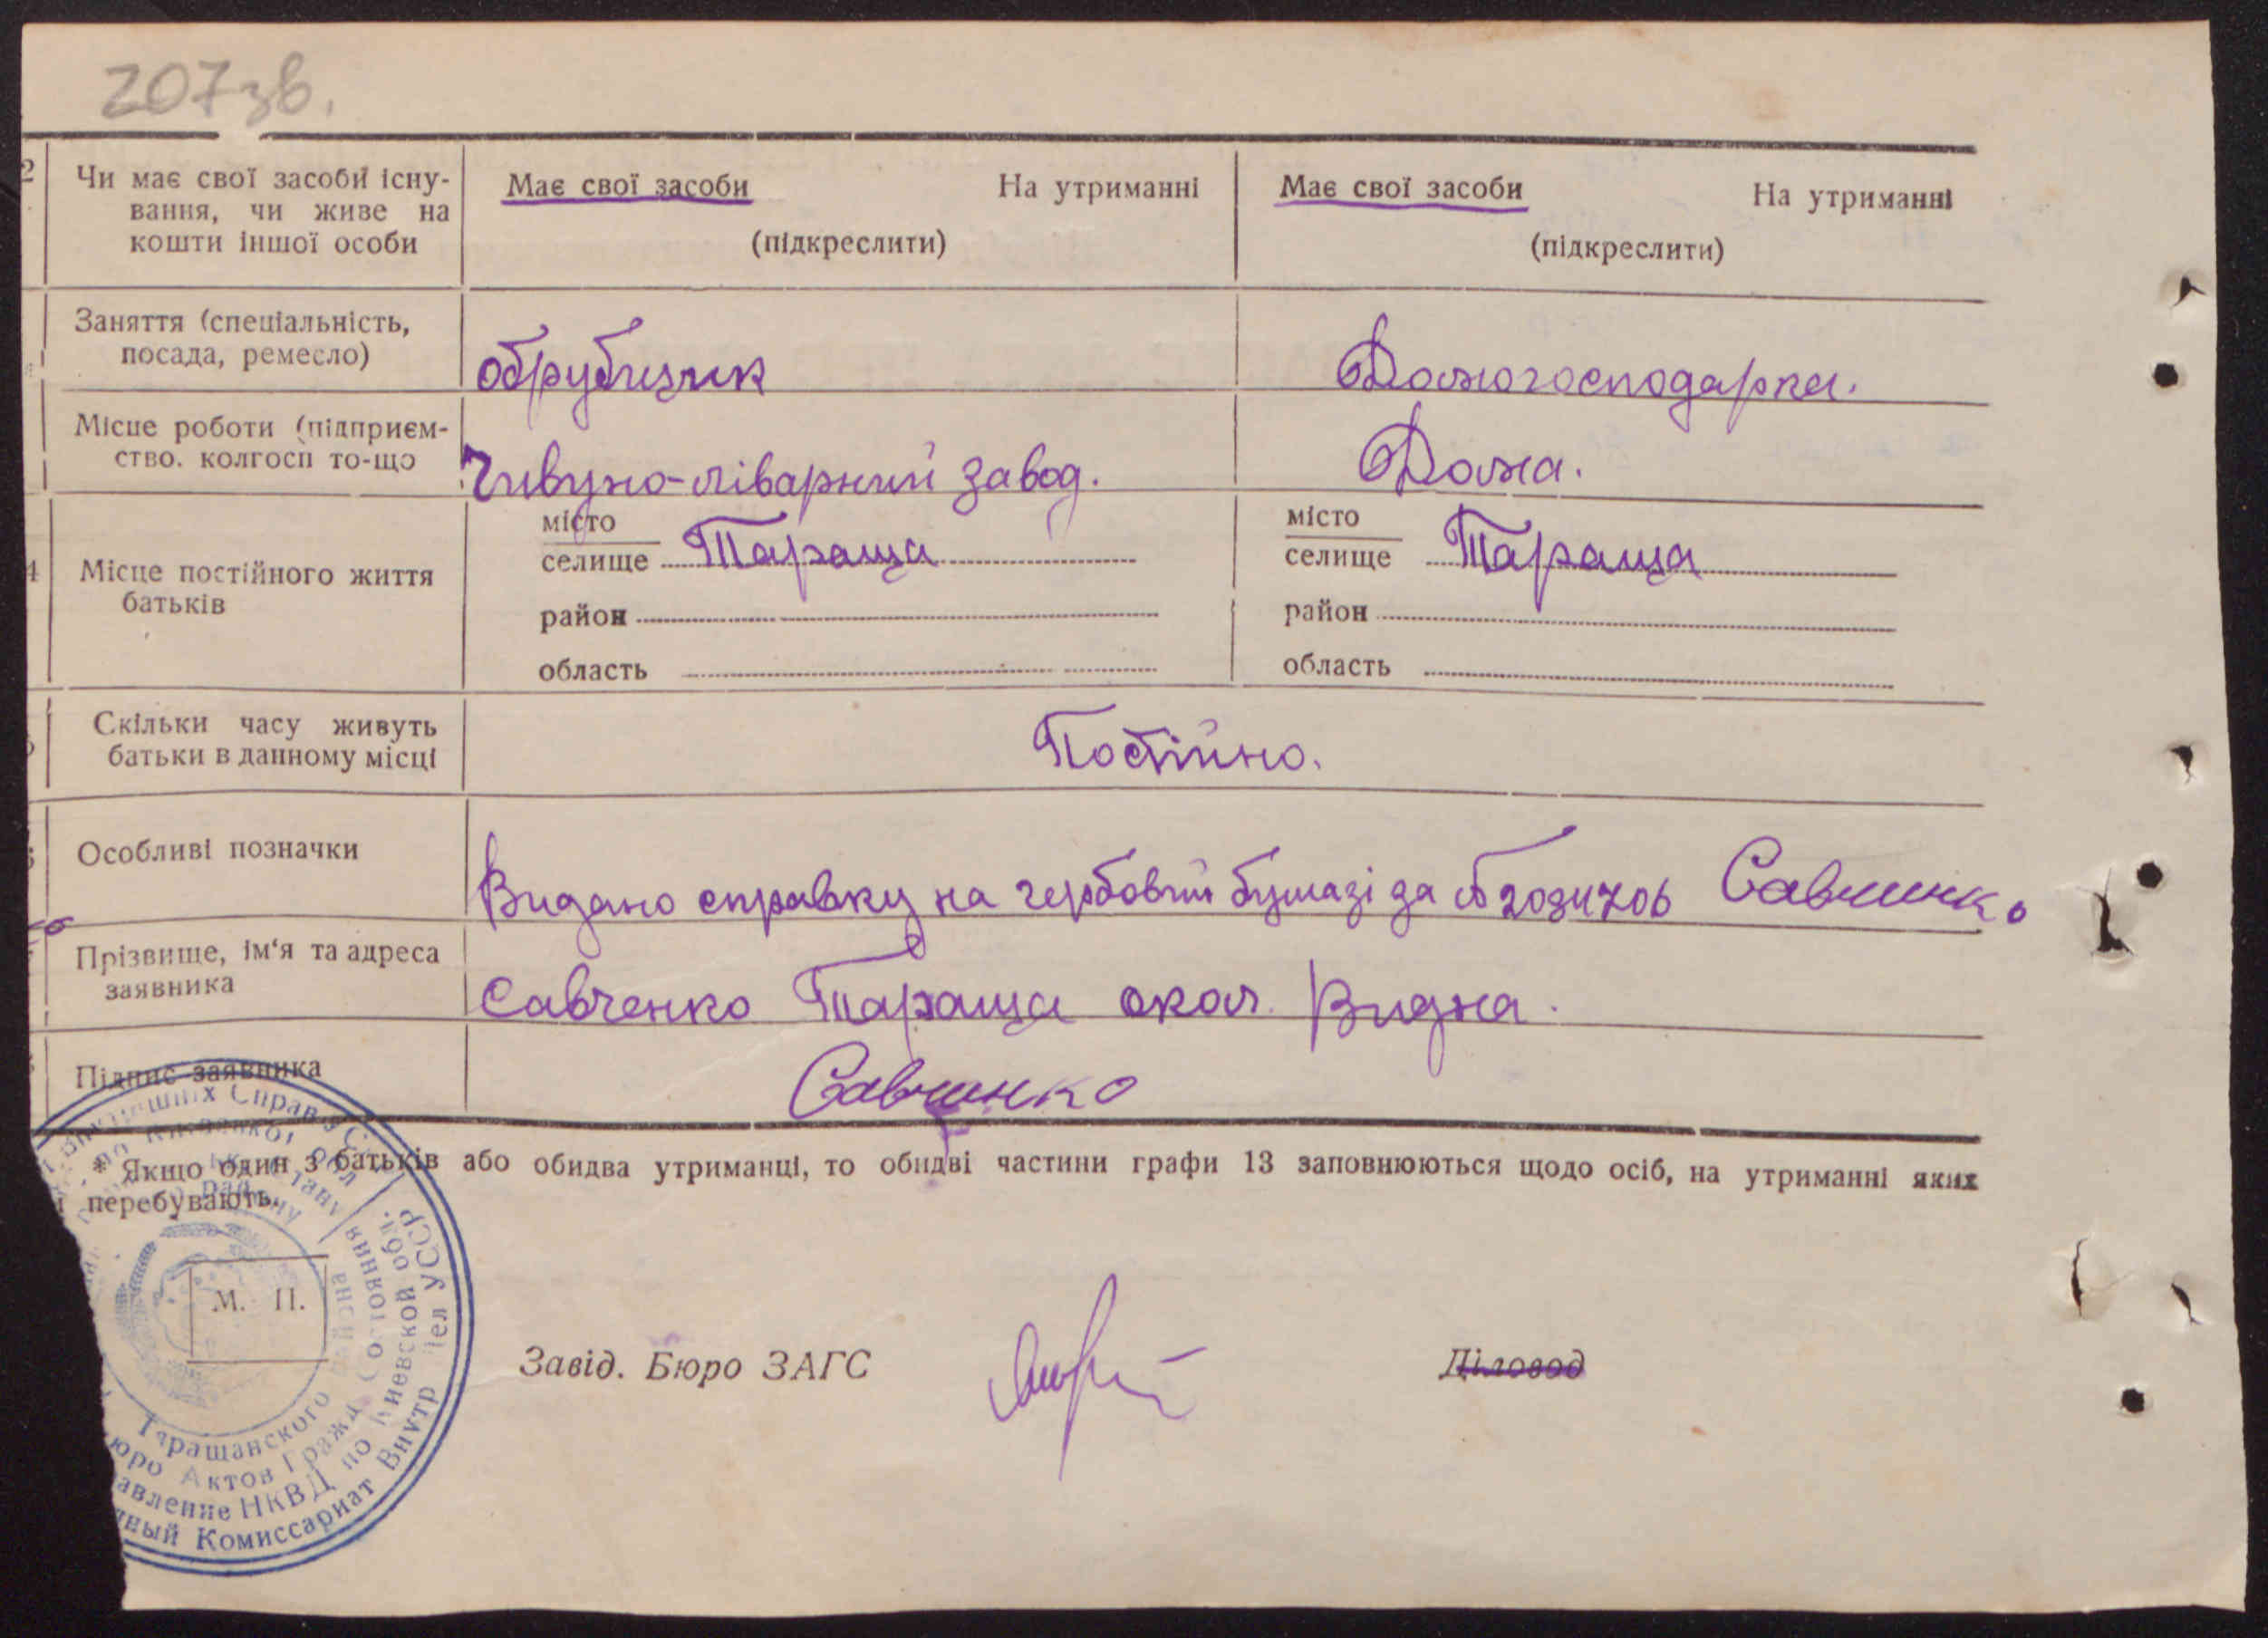 207зв.
2 Чи має свої засоби існу-
вання, чи живе на
кошти іншої особи
Має свої засоби На утриманні
(підкреслити)
Має свої засоби На утриманні
(підкреслити)
Заняття (спеціальність,
посада, ремесло)
обрубщик
Домогосподарка.
Місце роботи (підприєм-
ство. колгосп то-що
Чивуно-ліварний завод.
Дома.
4 Місце постійного життя
батьків
місто
селище Тараща
район
область
місто
селище Тараща
район
область
Скільки часу живуть
батьки в данному місці
Постійно.
Особливі позначки
Видано справку на гербовий бумазі за
Прізвище, ім'я та адреса
заявника
Савченко Тараща окол. Видна.
Підпис заявника
Савчинко
* Якщо один з батьків або обидва утриманці, то обидві частини графи 13 заповнюються щодо осіб, на утриманні яких
и перебувають.
М. П.
Завід. Бюро ЗАГС
Діловод
Таращанского
юро Актов Гражд. Состояния
авление НКВД по Киевской обл.
ный Комиссариат Внутр Дел УССР